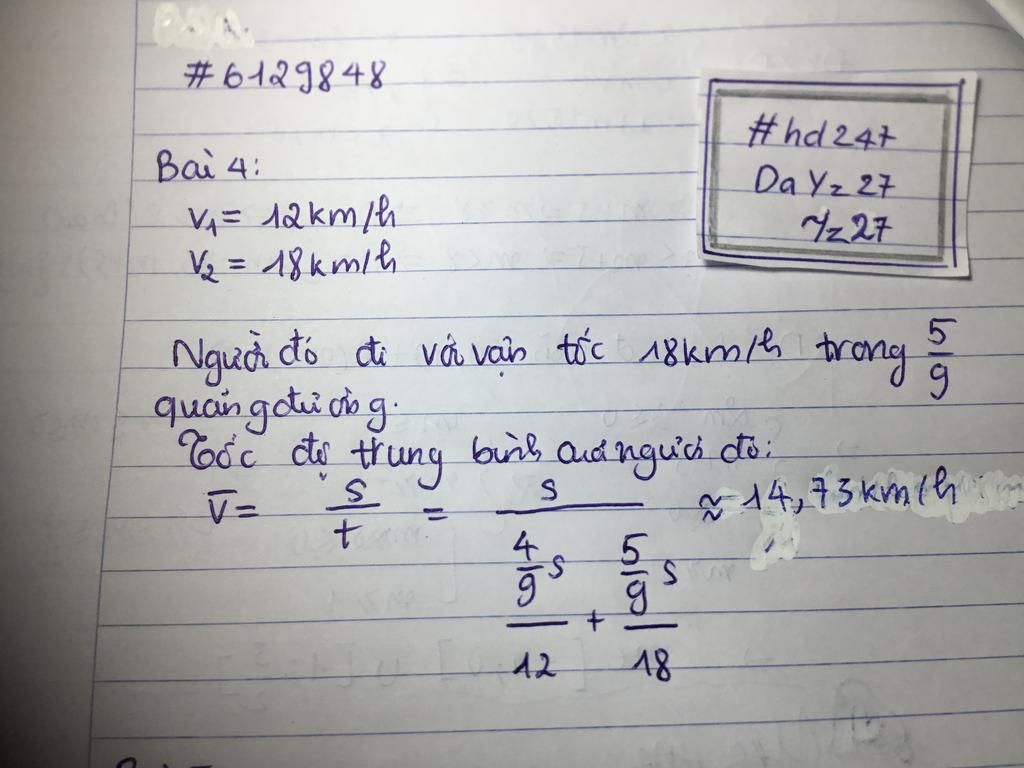 #6129848
#hd247
Da Yz 27
Yz27
Bài 4:
v₁ = 12km/h
v₂ = 18km/h
Người đó đi với vận tốc 18km/h trong 5/9
quãng đường.
Tốc độ trung bình của người đó:
v̅ = s/t = s/((4/9 s)/12 + (5/9 s)/18) ≈ 14,73km/h